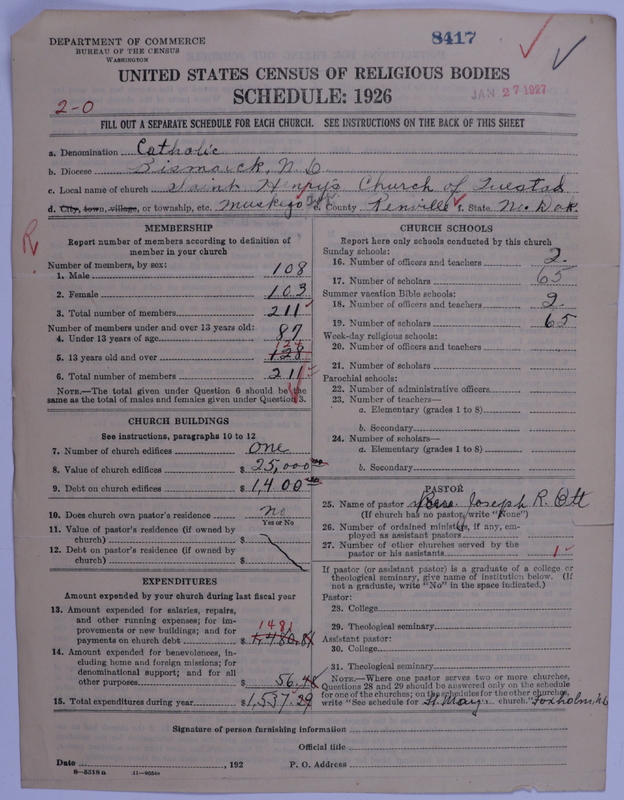 DEPARTMENT OF COMMERCE
BUREAU OF THE CENSUS
WASHINGTON
8417
UNITED STATES CENSUS OF RELIGIOUS BODIES
SCHEDULE: 1926
2-0
JAN 27 1927
FILL OUT A SEPARATE SCHEDULE FOR EACH CHURCH. SEE INSTRUCTIONS ON THE BACK OF THIS SHEET
a. Denomination Catholic
b. Diocese Bismarck, N. D.
c. Local name of church Saint Henry's Church of
d. City, town, village, or township, etc. Muskego e. County Renville f. State No. Dak.
R
MEMBERSHIP
Report number of members according to definition of
member in your church
Number of members, by sex:
1. Male 108
2. Female 103
3. Total number of members 211
Number of members under and over 13 years old:
4. Under 13 years of age 87
124
5. 13 years old and over 128
6. Total number of members 211
NOTE.—The total given under Question 6 should be the
same as the total of males and females given under Question 3.
CHURCH BUILDINGS
See instructions, paragraphs 10 to 12
7. Number of church edifices One
8. Value of church edifices $ 25,000
9. Debt on church edifices $ 1,400
10. Does church own pastor's residence no
Yes or No
11. Value of pastor's residence (if owned by
church) $
12. Debt on pastor's residence (if owned by
church) $
EXPENDITURES
Amount expended by your church during last fiscal year
13. Amount expended for salaries, repairs,
and other running expenses; for im-
provements or new buildings; and for
payments on church debt $ 1,480.81
1481
14. Amount expended for benevolences, in-
cluding home and foreign missions; for
denominational support; and for all
other purposes $ 56.48
15. Total expenditures during year $ 1,537.29
CHURCH SCHOOLS
Report here only schools conducted by this church
Sunday schools:
16. Number of officers and teachers 2
17. Number of scholars 65
Summer vacation Bible schools:
18. Number of officers and teachers 2
19. Number of scholars 65
Week-day religious schools:
20. Number of officers and teachers
21. Number of scholars
Parochial schools:
22. Number of administrative officers
23. Number of teachers—
a. Elementary (grades 1 to 8)
b. Secondary
24. Number of scholars—
a. Elementary (grades 1 to 8)
b. Secondary
PASTOR
25. Name of pastor Rev. Joseph R. Ott
(If church has no pastor, write "None")
26. Number of ordained ministers, if any, em-
ployed as assistant pastors
27. Number of other churches served by the
pastor or his assistants 1
If pastor (or assistant pastor) is a graduate of a college or
theological seminary, give name of institution below. (If
not a graduate, write "No" in the space indicated.)
Pastor:
28. College
29. Theological seminary
Assistant pastor:
30. College
31. Theological seminary
NOTE.—Where one pastor serves two or more churches,
Questions 28 and 29 should be answered only on the schedule
for one of the churches; on the schedules for the other churches,
write "See schedule for St. Mary church." Foxholm, N.D.
Signature of person furnishing information
Official title
Date , 192 P. O. Address
8—5318a 11—9054